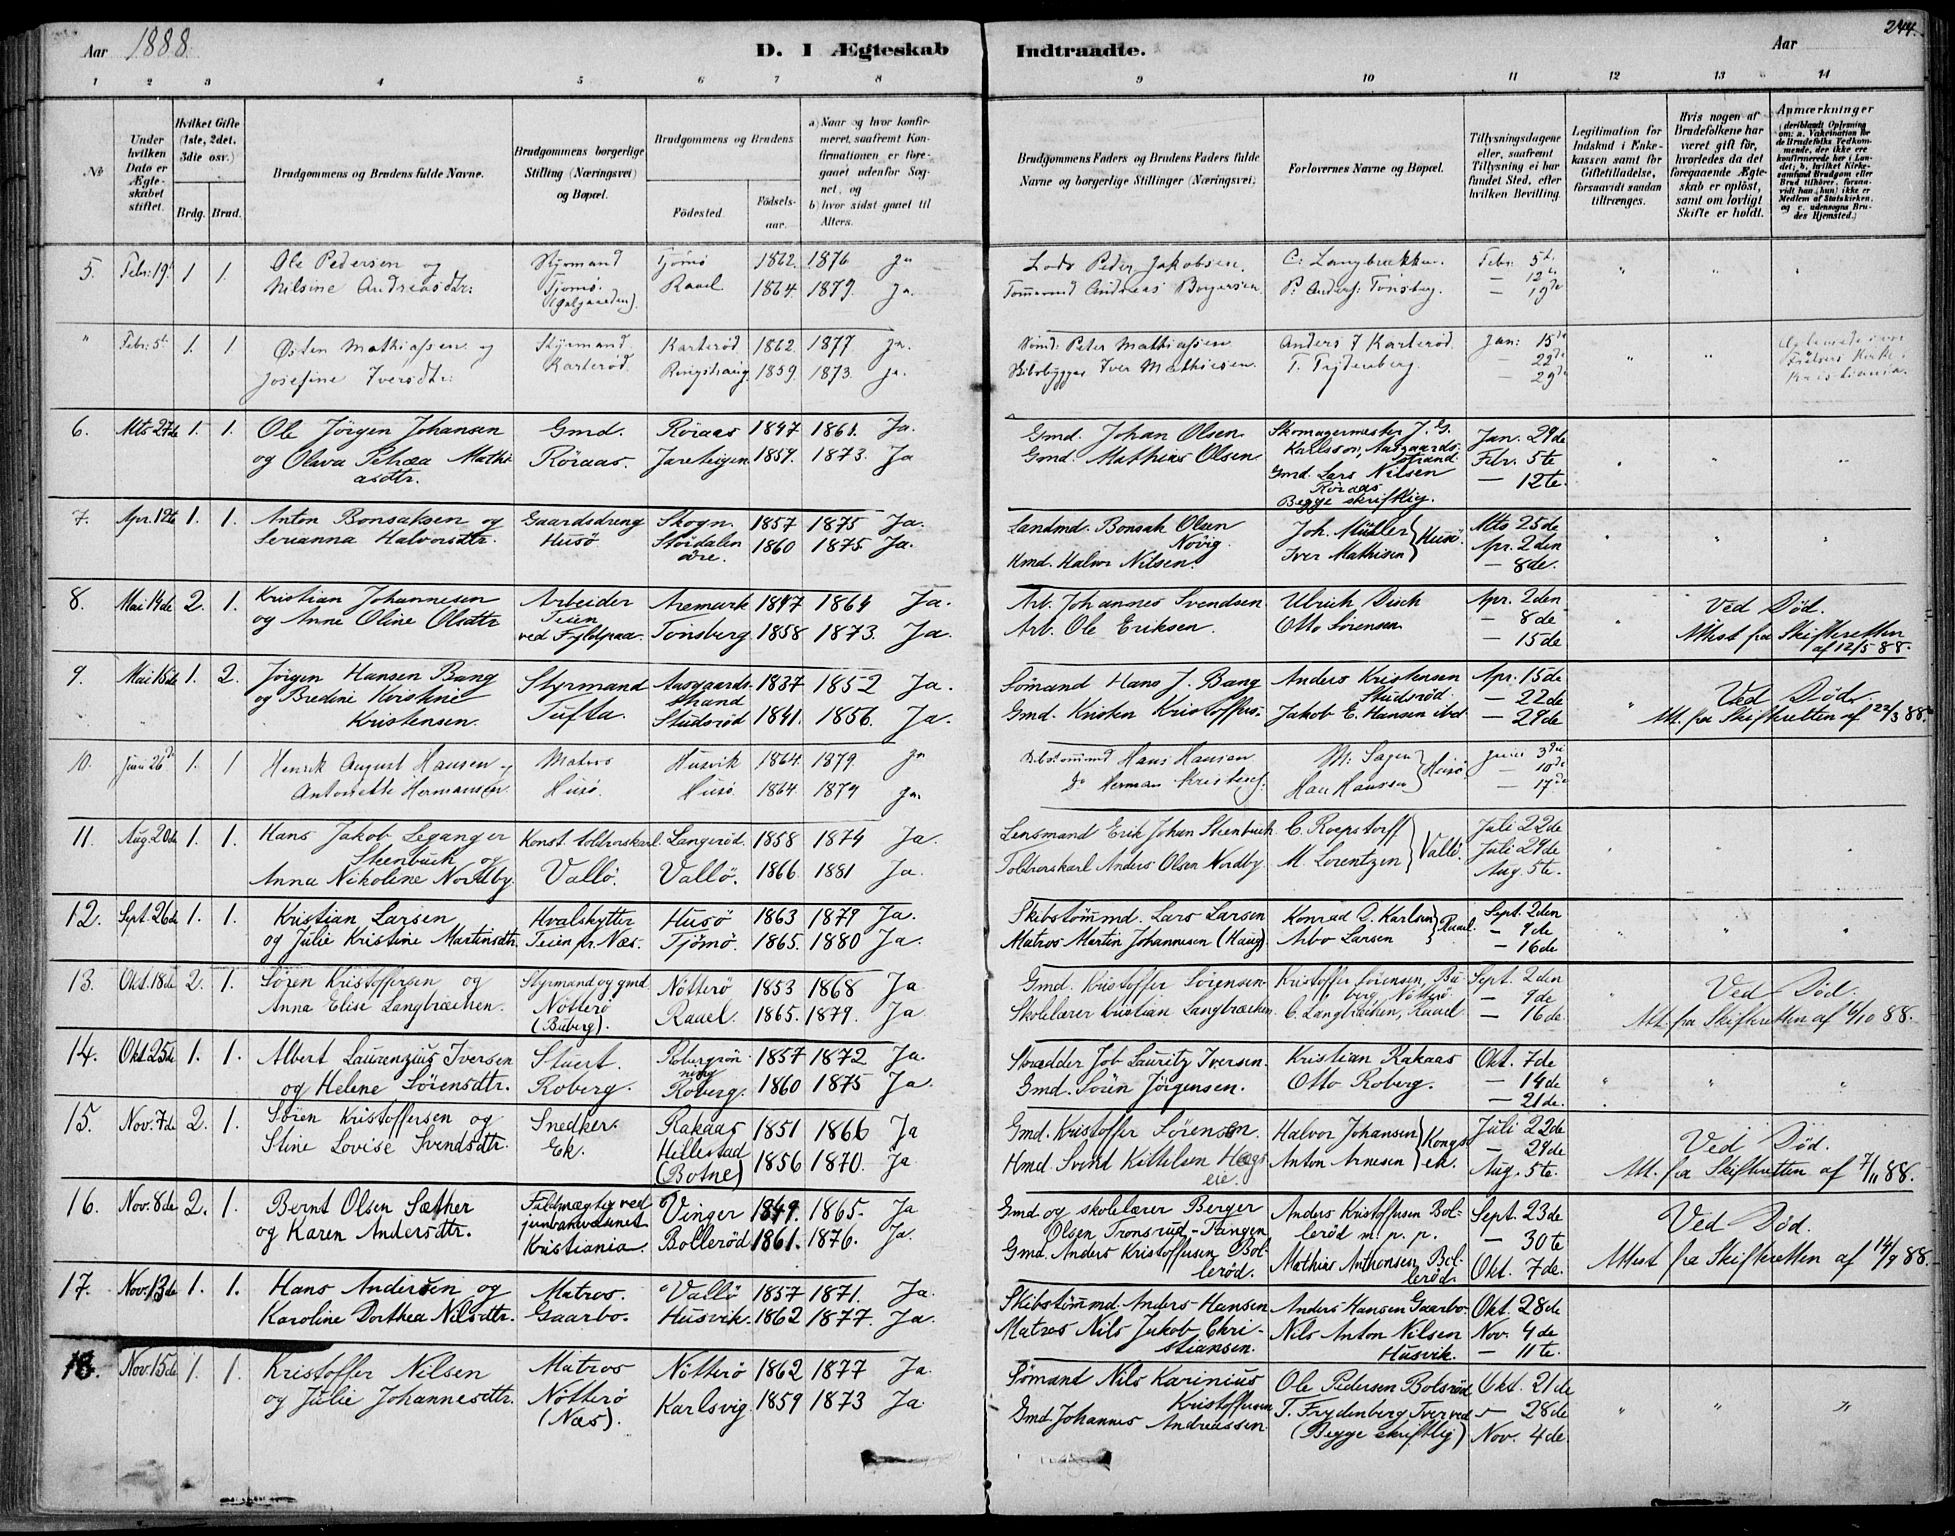 Aar 1888.
D. I Ægteskab
Indtraadte.
Aar
244.
1 2 3 4 5 6 7 8
9 10 11 12 13 14
№
Under hvilken Dato er Ægteskabet stiftet.
Hvilket Gifte (1ste, 2det, 3die osv.)
Brdg. Brud.
Brudgommens og Brudens fulde Navne.
Brudgommens borgerlige Stilling (Næringsvei) og Bopæl.
Brudgommens og Brudens
Fødested.
Fødselsaar.
a) Naar og hvor konfirmeret, saafremt Konfirmationen er foregaaet udenfor Sognet, og
b) hvor sidst gaaet til Alters.
Brudgommens Faders og Brudens Faders fulde Navne og borgerlige Stillinger (Næringsvei).
Forlovernes Navne og Bopæl.
Tillysningsdagene eller, saafremt Tillysning ei har fundet Sted, efter hvilken Bevilling.
Legitimation for Indskud i Enkekassen samt for Giftetilladelse, forsaavidt saadan tiltrænges.
Hvis nogen af Brudefolkene har været gift før, hvorledes da det foregaaende Ægteskab er opløst, samt om lovligt Skifte er holdt.
Anmærkninger
5. Febr: 19 1 1. Ole Pedersen og Styrmand Tjømø 1862. 1876 Ja
Nilsine Andreasdtr: Tjømø. Raael 1864. 1879. Ja.
Lods Peder Jakobsen. C: Langbrækken. Febr. 5t.
Tømmermd Andreas Borgersen P: Anders: Tønsberg. — 12t — 19de
" Febr: 5t. 1. 1 Østen Mathiassen og Styrmand Karterød 1862. 1877 Ja.
Josefine Iversdtr: Karterød. Ringshaug. 1859. 1873. Ja.
Peter Mathiassen Anders J Karterød. Jan: 15de
Skibsbygger Iver Mathiesen. T. Frydenberg. — 22de — 29de
Frelsers Kirke. Kristiania.
6. Mts 27de 1. 1. Ole Jörgen Johansen Gmd. Röraas 1847 1861. Ja.
og Olava Petrea Mathiasdtr. Röraas. Jareteigen 1859. 1873. Ja
Gmd. Johan Olsen Skomagermester J. G. Karlsson, Aasgaardsstrand. Jan. 29de
Gmd. Mathias Olsen Gmd. Lars Nilsen Röraas Febr. 5te — 12te.
Begge skriftlig.
7. Apr. 12te 1. 1. Anton Bonsaksen og Gaardsdreng Skogn. 1857 1875 Ja.
Serianna Halvorsdtr. Husö Stördalen öore. 1860 1875 Ja.
Landmd. Bonsak Olsen Növig. Joh. Müller } Husö. Mts 25de
Hmd. Halvor Nilsen. Iver Mathisen Apr. 2den — 8de.
8. Mai 14de 2. 1. Kristian Johannesen Arbeider Aremark 1847 1864 Ja.
og Anne Oline Olsdtr Teien ved Fyldpaa. Tönsberg 1858 1873. Ja.
Arb. Johannes Svendsen Ulrich Disch Apr. 2den
Arb. Ole Eriksen. Otto Sörensen — 8de — 15de
Ved Död. Attest fra Skifteretten af 12/5 88.
9. Mai 15de 1. 2. Jörgen Hansen Bang Styrmand Aasgaardsstrand 1837 1852 Ja.
og Bredine Kristine Kristensen. Tufta. Studsröd 1841. 1856. Ja.
Sömand Hans J. Bang Anders Kristensen Studsröd Apr. 15de
Gmd. Kristen Kristoffers: Jakob E. Hansen ibd — 22de — 29de
Ved Död. Att. fra Skifteretten af 22/3 88.
10. Juni 26de 1. 1 Henrik August Hansen og Matros Husvik 1864. 1879. Ja
Antoinette Hermansen. Husö. Husö. 1864 1879 Ja.
Skibstømmd Hans Hansen M: Sagen } Husø. Juni 3die
Do Herman Kristens: Hans Hansen — 10de — 17de
11. Aug. 20de 1. 1. Hans Jakob Leganger Steenbuch og Konst. Toldroerskarl. Langeröd. 1858 1874 Ja.
Anna Nikoline Nordby. Vallö. Vallö. 1866 1881 Ja.
Lensmand Erik Johan Steenbuch C. Roepstorff } Vallö. Juli 22de
Toldroerskarl Anders Olsen Nordby. M. Lorentzen Juli 29de Aug. 5te.
12. Sept. 26de 1. 1. Kristian Larsen Hvalskytter Husö 1863 1879 Ja.
og Julie Kristine Martinsdtr. Teien fr. Næs. Tjömö. 1865. 1880 Ja.
Skibstömmd. Lars Larsen Konrad D. Karlsen } Raael. Sept. 2den
Matros Martin Johannesen (Haug). Arbo Larsen — 9de — 16de
13. Okt. 18de 2. 1. Sören Kristoffersen og Styrmand og gmd Nötterö 1853 1868 Ja
Anna Elise Langbrækken. Nötterö (Buberg). Raael. 1865. 1879. Ja
Gmd. Kristoffer Sörensen Kristoffer Sörensen, Buberg, Nötterö Sept. 2den
Skolelærer Kristian Langbrækken C. Langbrækken, Raael — 9de — 16de
Ved Död. Att. fra Skifteretten af 16/10 88.
14. Okt. 25de 1. 1. Albert Laurenzius Iversen Stuert. Robergröning 1857 1872 Ja.
og Helene Sörensdtr. Roberg. Roberg. 1860 1875 Ja.
Skrædder Job Lauritz Iversen Kristian Rakaas Okt. 7de
Gmd. Sören Jörgensen. Otto Roberg. — 14de — 21de.
15. Nov. 7de 2. 1. Sören Kristoffersen og Snedker. Rakaas 1851 1866 Ja
Stine Lovise Svendsdtr. Ek. Hillestad (Botne) 1856 1870. Ja
Gmd. Kristoffer Sörensen. Halvor Johansen } Kongsek. Juli 22de
Hmd. Svend Kittelsen Hegseie. Anton Arnesen — 29de Aug. 5te.
Ved Död. Att. fra Skifteretten af 7/11 88.
16. Nov. 8de 2. 1. Bernt Olsen Sæther Fuldmægtig ved jernbanevæsenet Vinger 1849. 1865. Ja
og Karen Andersdtr. Kristiania. Bolleröd 1861. 1876. Ja.
Gmd og skolelærer Berger Olsen Tronsrud-Tangen Anders Kristoffersen Bolleröd m. p. p. Sept. 23de
Gmd. Anders Kristoffersen Bolleröd. Mathias Anthonsen Bolleröd. — 30te Okt. 7de.
Ved Död. Attest fra Skifteretten af 14/9 88.
17. Nov. 13de 1. 1. Hans Andersen og Matros. Vallö 1857 1871. Ja.
Karoline Dorthea Nilsdtr. Gaarbo. Husvik. 1862 1877. Ja.
Skibstömmd. Anders Hansen Anders Hansen Gaarbo. Okt. 28de
Matros Nils Jakob Christiansen. Nils Anton Nilsen Husvik. Nov. 4de — 11te.
18. Nov. 15de 1. 1. Kristoffer Nilsen Matros Nötterö 1862 1877 Ja.
og Julie Johannesdtr. Nötterö (Næs). Karlsvig. 1859 1873 Ja.
Sömand Nils Karinius Kristoffersen Ole Pedersen Bolsröd Okt. 21de
Gmd. Johannes Andreassen T. Frydenberg Tverved — 28de
(Begge skriftlig) Nov. 4de.